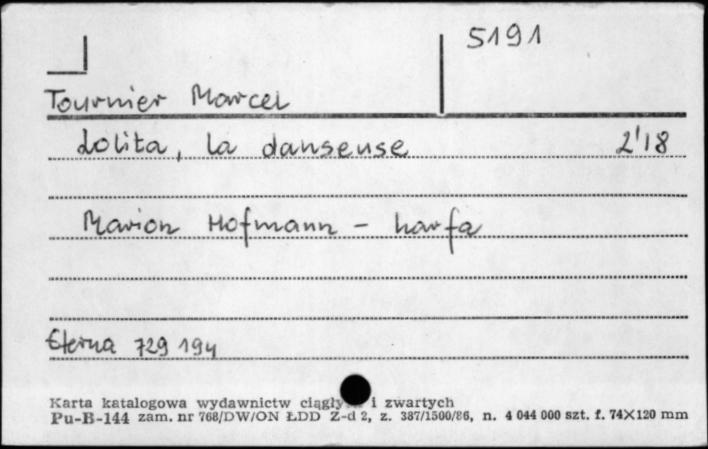 5191
Tournier Marcel
Lolita, la danseuse 2'18
Marion Hofmann - harfa
Eterna 729 194
Karta katalogowa wydawnictw i zwartych
Pu-B-144 zam. nr 768/DW/ON ŁDD Z-d 2, z. 387/1500/86, n. 4 044 000 szt. f. 74×120 mm